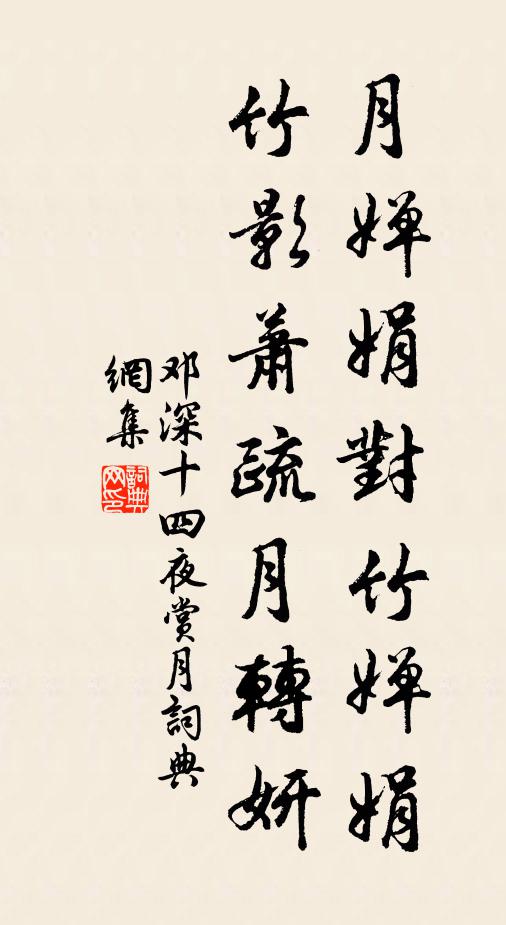 月嬋娟對竹嬋娟
竹影蕭疏月轉妍
邓深十四夜赏月詞典
網集
詞典網印